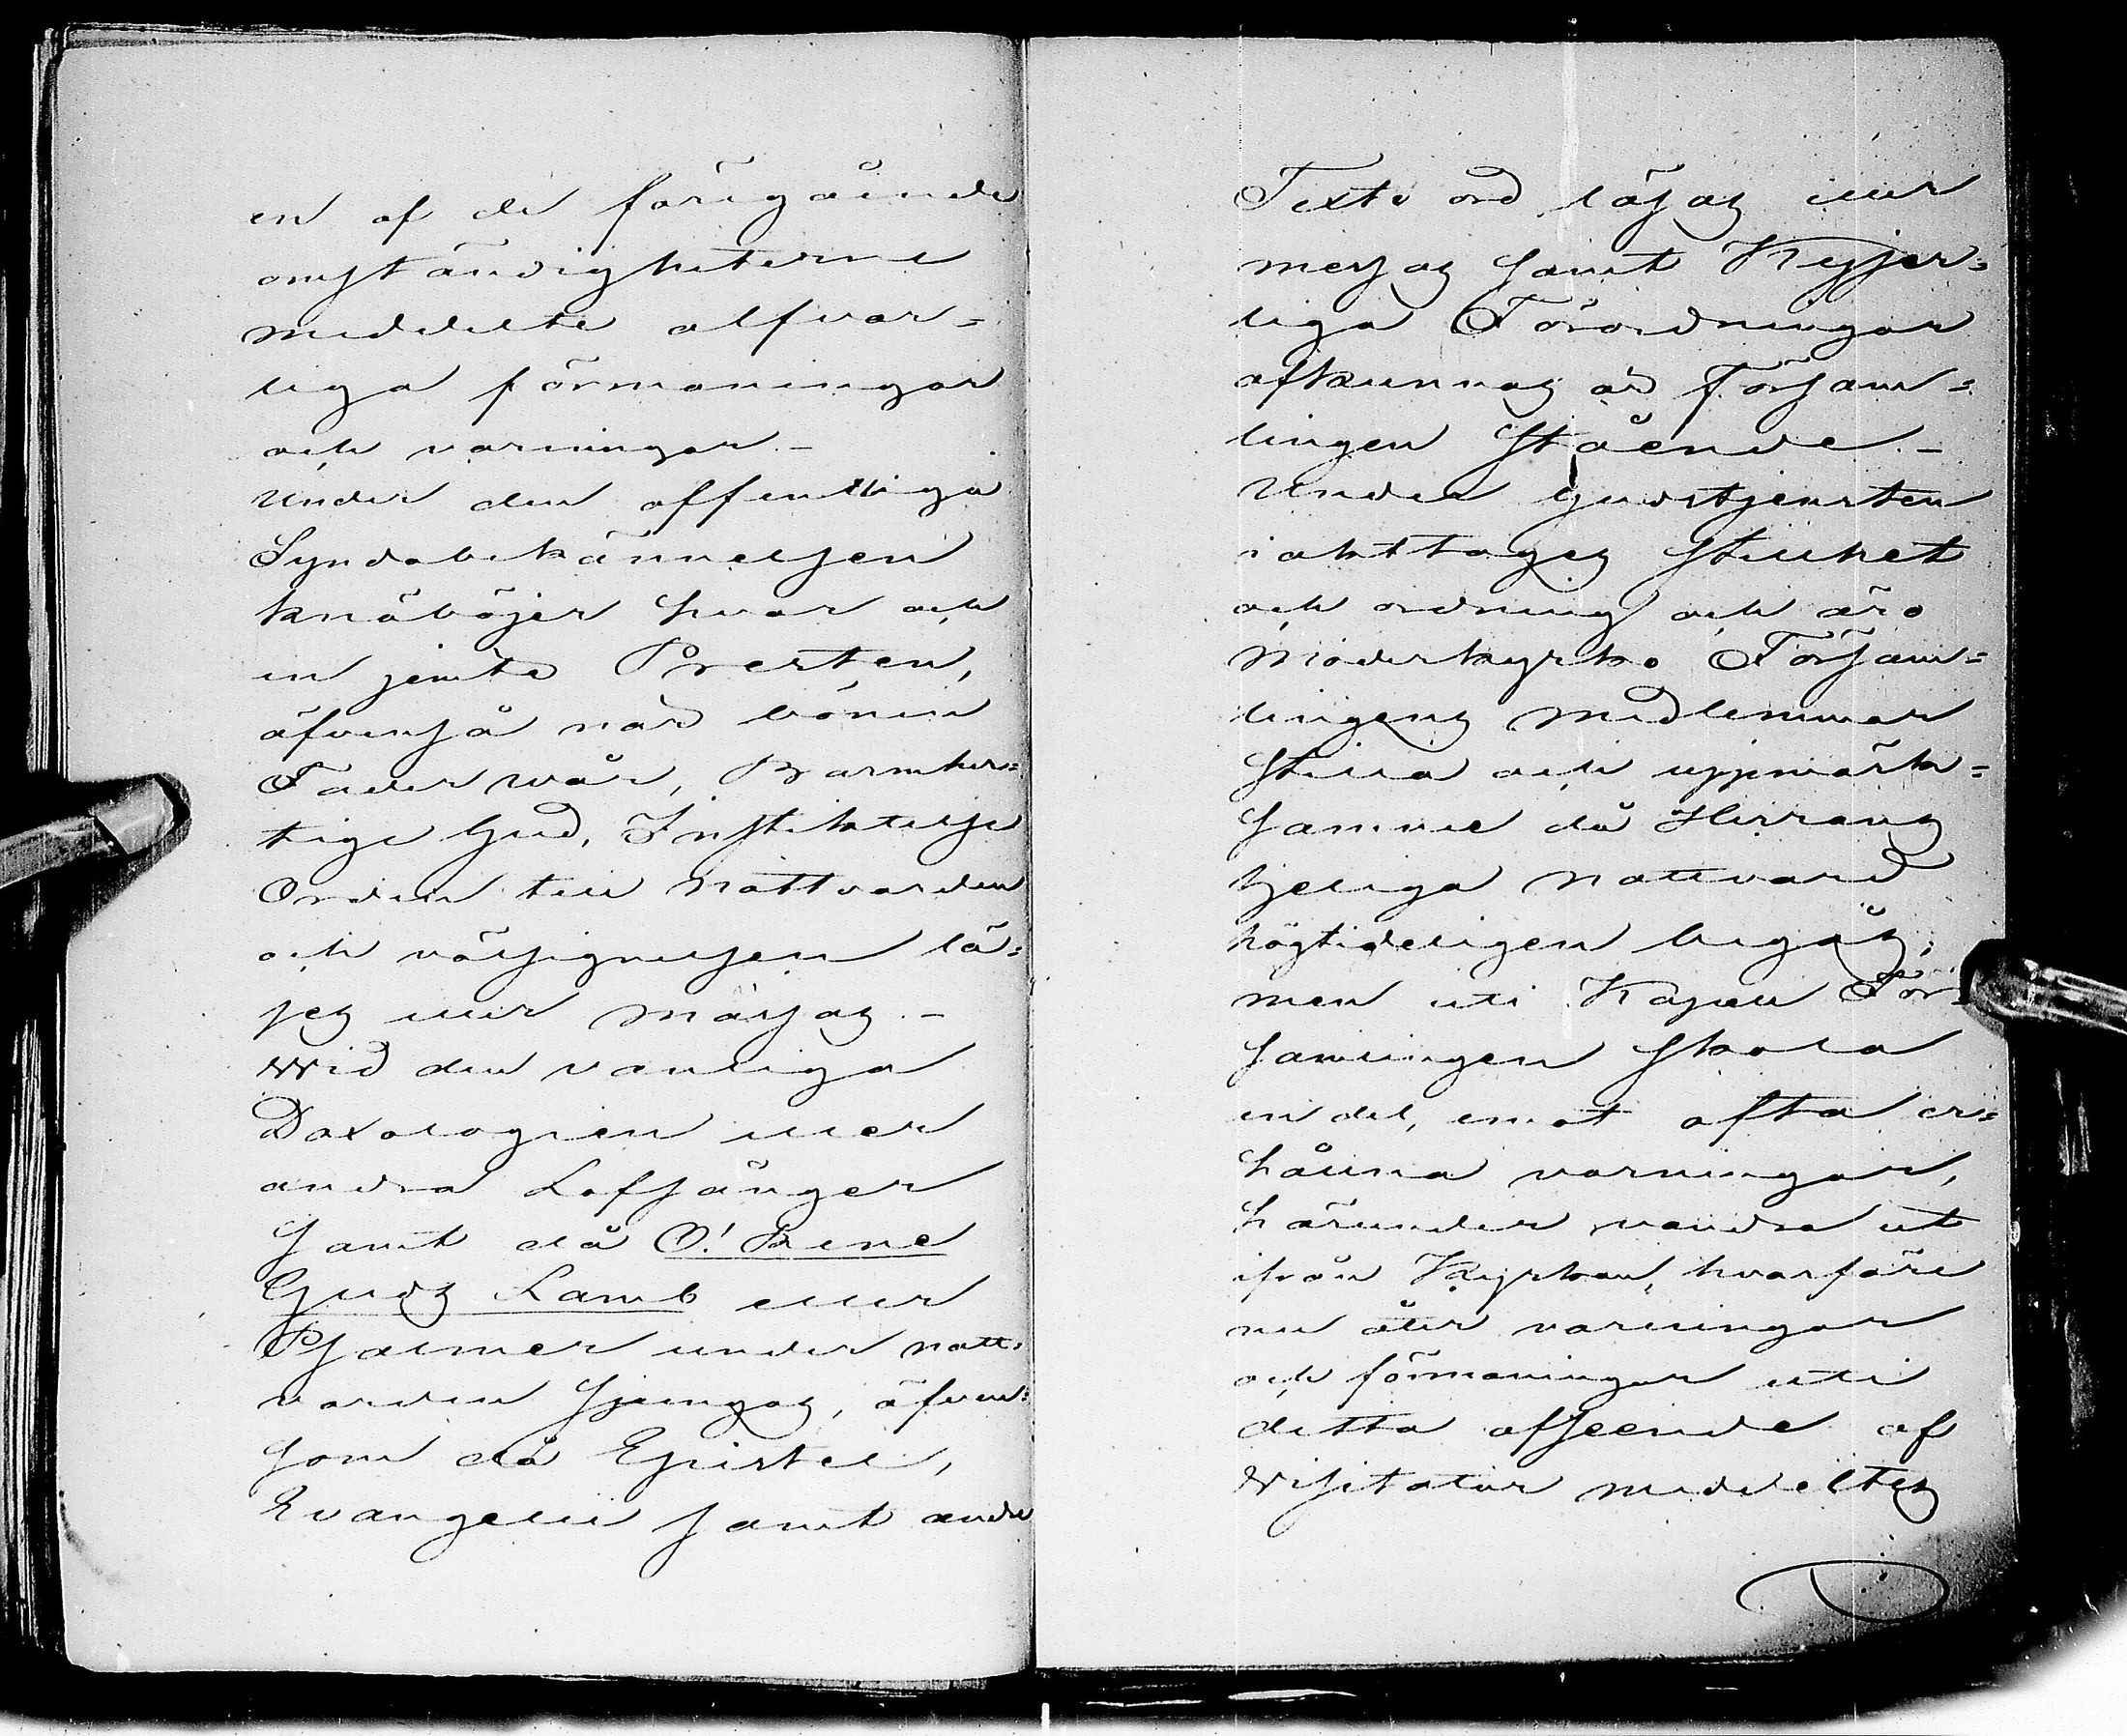 en af de föregående
omständigheterne
meddelte alfvar=
liga förmaningar
och varningar.-
Under den offentliga
Syndabekännelsen
knäböjer hvar och
en jemte Presten,
äfvenså när bönen
Fader wår, Barmher=
tige Gud, Instiktelse
Orden till Nattvarden
och välsignelsen lä=
ses eller mässas.-
Wid den vanliga
Doxologien eller
andra Lofsånger
samt då O! Rene
Guds Lamb eller
Psalmer under natt=
varden sjungas, äfven=
som då Epistel,
Evangelii samt andre
Texte ord läsas eller
messas samt Kejser=
liga Förordningar
afkunnas är Försam=
lingen stående.-
Under gudstjensten
iakttages stillhet
och ordning och äro
Moderkyrko Försam=
lingens medlemmar
stilla och uppmärk=
samme då Herrans
heliga nattvard
högtideligen begås,
men uti Kapell För=
samlingen skola
en del, emot ofta er=
hållna varningar,
härunder vandra ut
ifrån Kyrkan, hvarföre
nu åter varningar
och förmaningar uti
detta afseende af
Visitator meddeltes